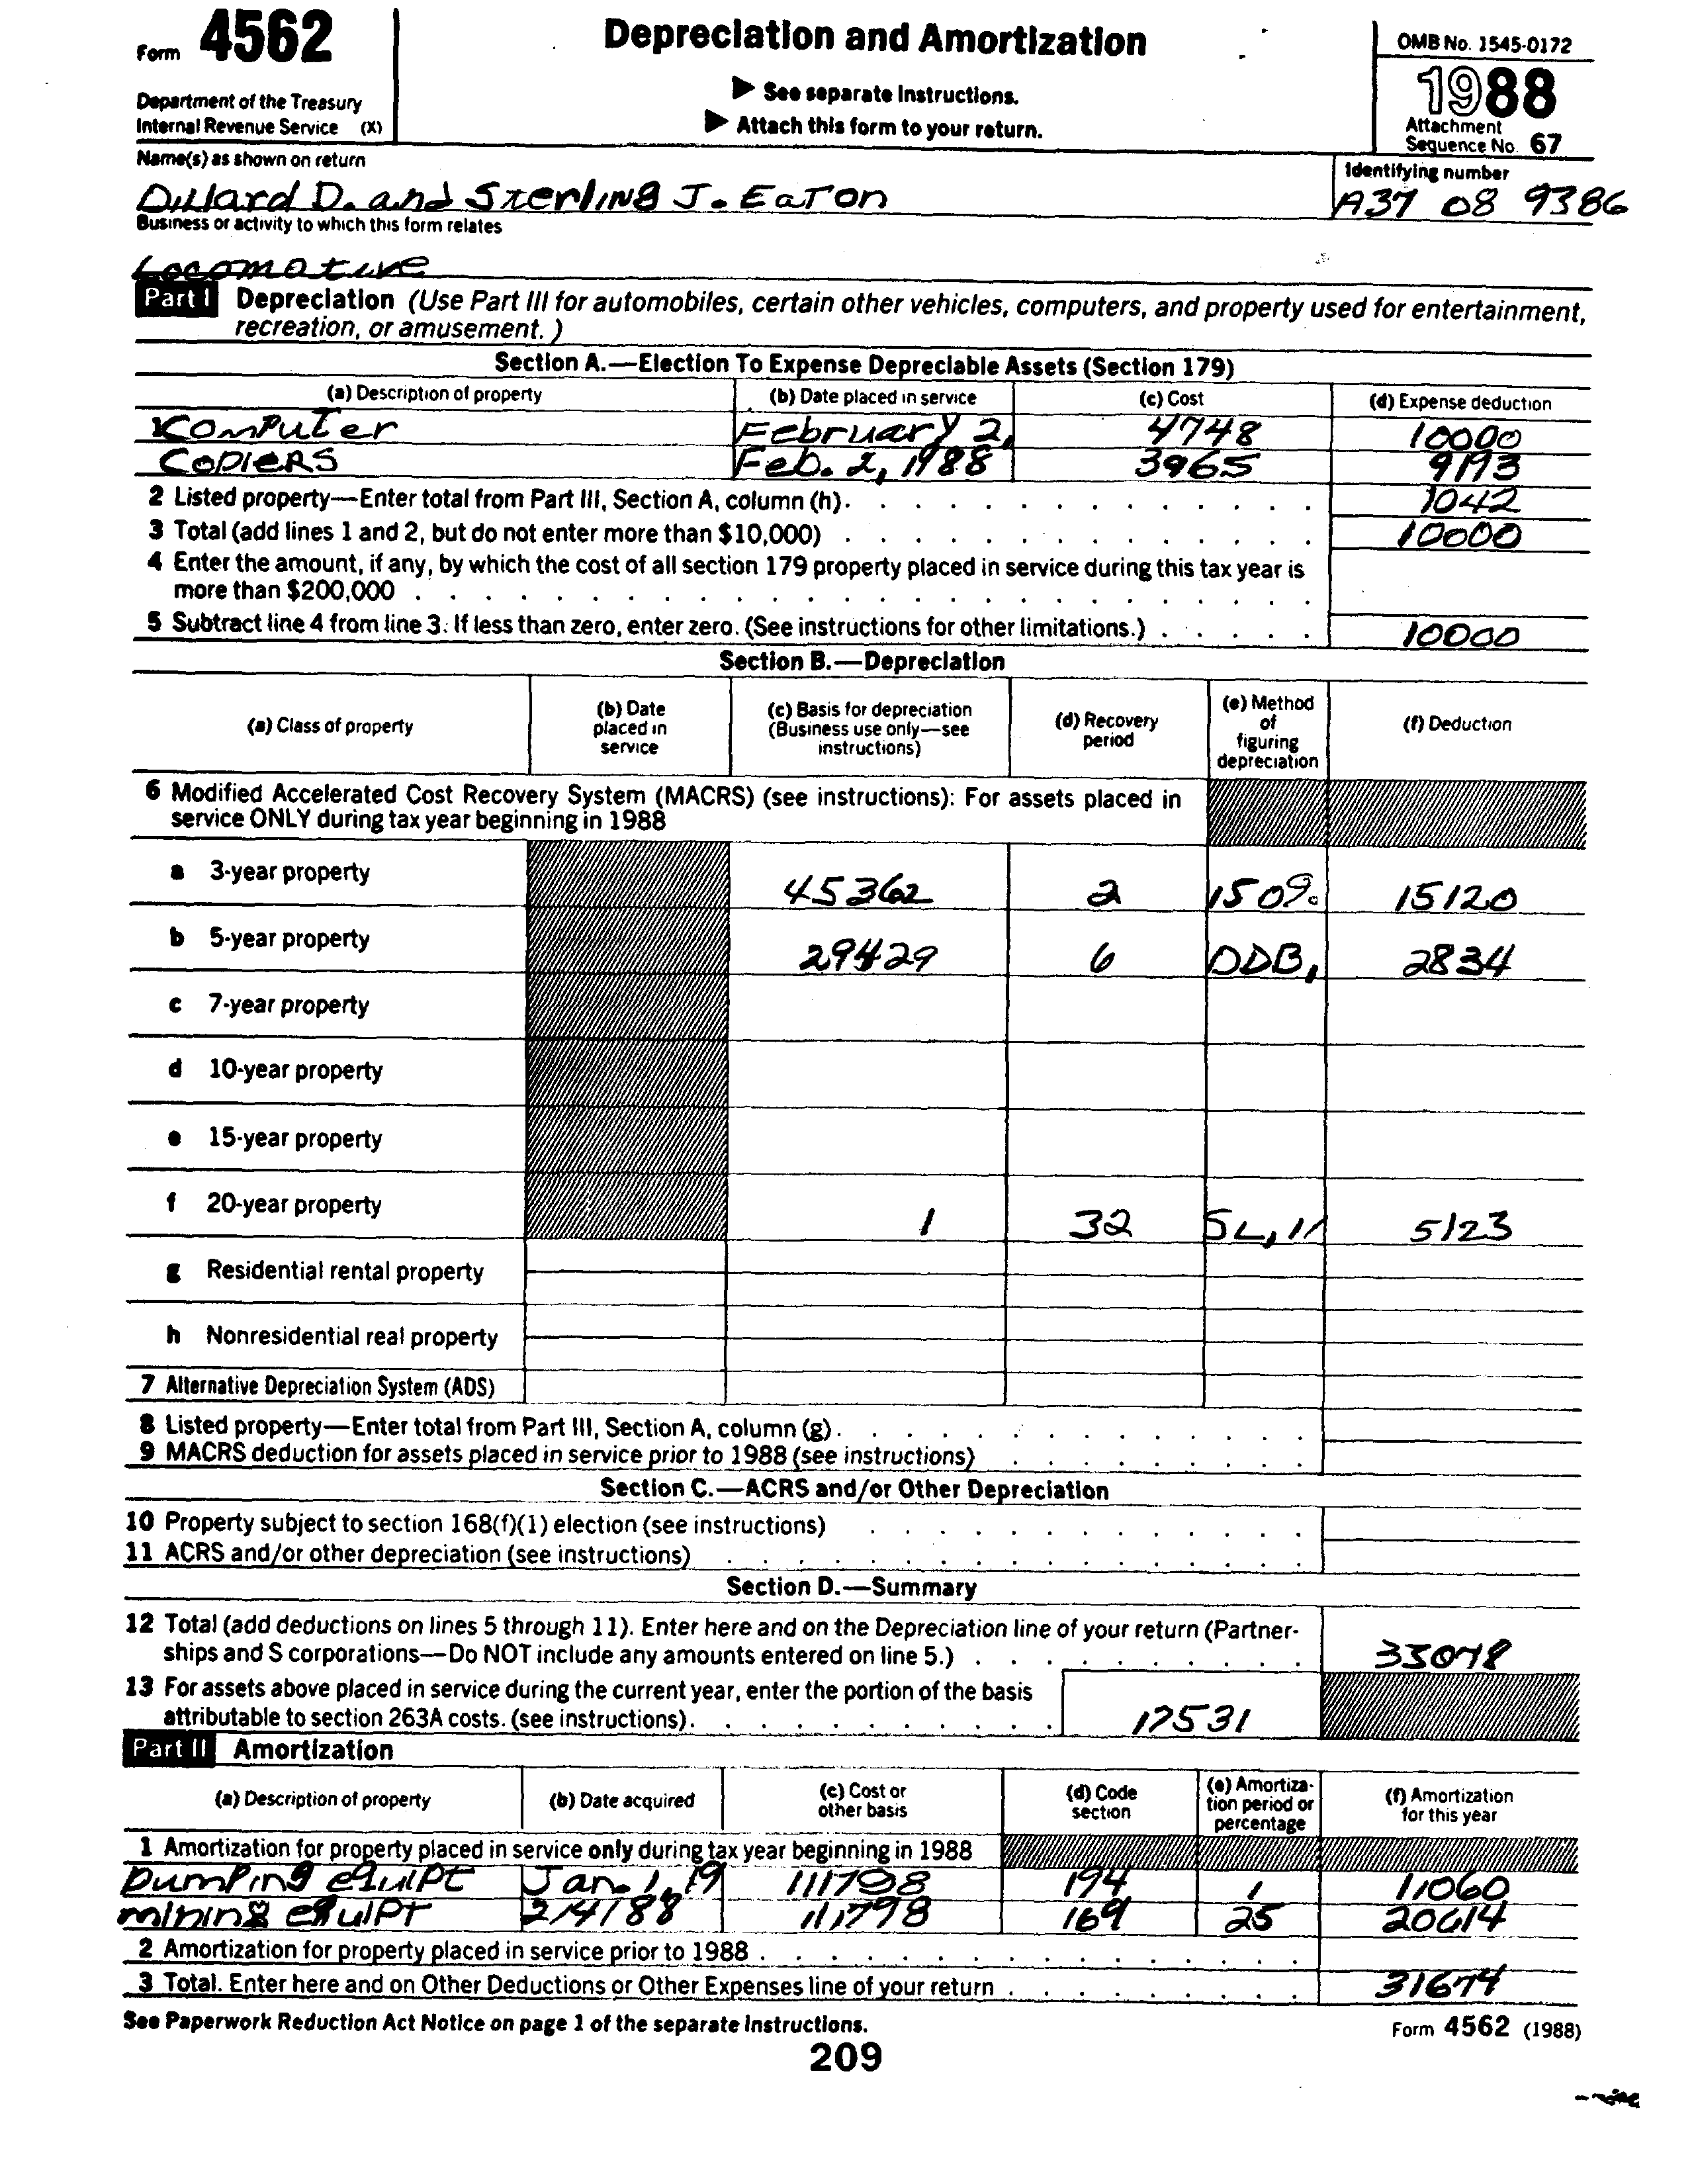 Form 4562
Depreciation and Amortization
OMB No. 1545-0172
1988
Department of the Treasury
Internal Revenue Service (X)
▶ See separate Instructions.
▶ Attach this form to your return.
Attachment
Sequence No. 67
Name(s) as shown on return
Identifying number
Dillard D. and Sterling J. Eaton
A37 08 9386
Business or activity to which this form relates
Locomotive
Part I Depreciation (Use Part III for automobiles, certain other vehicles, computers, and property used for entertainment,
recreation, or amusement.)
Section A.—Election To Expense Depreciable Assets (Section 179)
(a) Description of property (b) Date placed in service (c) Cost (d) Expense deduction
Komputer February 2, 4748 10000
Copiers Feb. 2, 1988 3965 9193
2 Listed property—Enter total from Part III, Section A, column (h). 1042
3 Total (add lines 1 and 2, but do not enter more than $10,000) 10000
4 Enter the amount, if any, by which the cost of all section 179 property placed in service during this tax year is
more than $200,000
5 Subtract line 4 from line 3. If less than zero, enter zero. (See instructions for other limitations.) 10000
Section B.—Depreciation
(a) Class of property (b) Date placed in service (c) Basis for depreciation (Business use only—see instructions) (d) Recovery period (e) Method of figuring depreciation (f) Deduction
6 Modified Accelerated Cost Recovery System (MACRS) (see instructions): For assets placed in
service ONLY during tax year beginning in 1988
a 3-year property 45362 2 150% 15120
b 5-year property 29429 6 DDB, 2834
c 7-year property
d 10-year property
e 15-year property
f 20-year property 1 32 SL, 11 5123
g Residential rental property
h Nonresidential real property
7 Alternative Depreciation System (ADS)
8 Listed property—Enter total from Part III, Section A, column (g).
9 MACRS deduction for assets placed in service prior to 1988 (see instructions)
Section C.—ACRS and/or Other Depreciation
10 Property subject to section 168(f)(1) election (see instructions)
11 ACRS and/or other depreciation (see instructions)
Section D.—Summary
12 Total (add deductions on lines 5 through 11). Enter here and on the Depreciation line of your return (Partner-
ships and S corporations—Do NOT include any amounts entered on line 5.) 33078
13 For assets above placed in service during the current year, enter the portion of the basis
attributable to section 263A costs. (see instructions). 17531
Part II Amortization
(a) Description of property (b) Date acquired (c) Cost or other basis (d) Code section (e) Amortiza-tion period or percentage (f) Amortization for this year
1 Amortization for property placed in service only during tax year beginning in 1988
Dumping equipt Jan. 1, 19 111798 194 1 11060
mining equipt 2/4/88 111798 169 25 20614
2 Amortization for property placed in service prior to 1988
3 Total. Enter here and on Other Deductions or Other Expenses line of your return 31674
See Paperwork Reduction Act Notice on page 1 of the separate Instructions.
Form 4562 (1988)
209